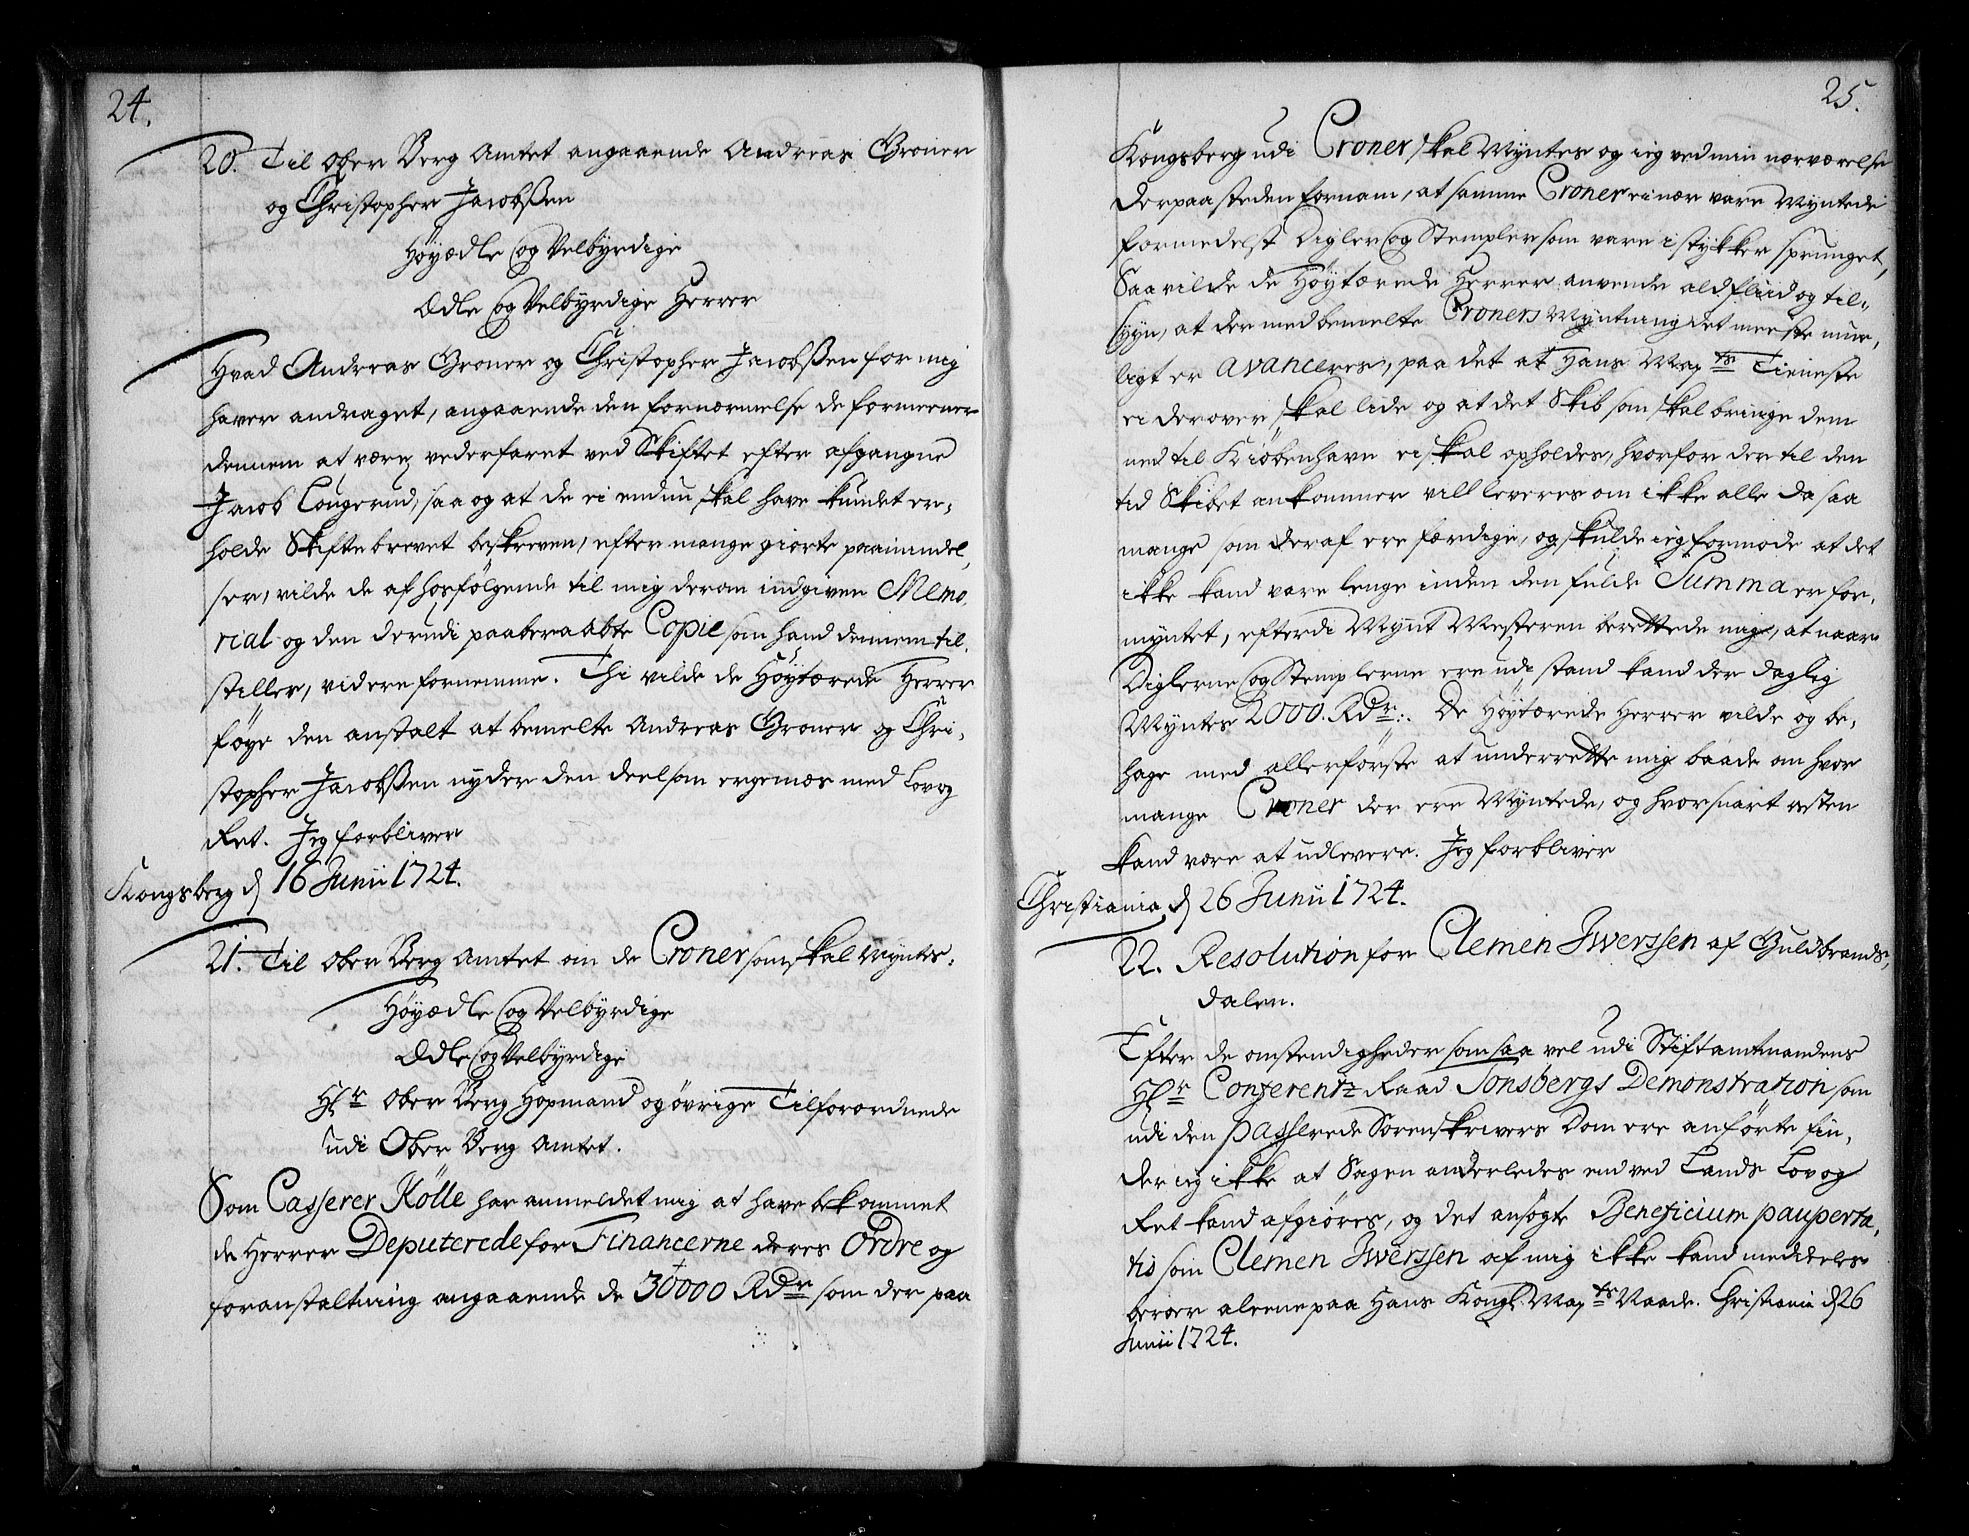 24.
20. Til Ober Berg Amtet angaaende Andreas Groner
og Christopher Jacobsßen
Høyædle og Velbyrdige
Ædle og Velbyrdige Herrer
Hvad Andreas Groner og Christopher Jacobsßen for mig
haver andraget, angaaende den fornærmelse de formeener
dennem at være vederfaret ved Skiftet efter afgangne
Jacob Lougerud, saa og at de ei endnu skal have kundet er-
holde Skifte brevet beskreven, efter mange giorte paamindel,
ser, vilde de af hosfølgende til mig derom indgiven Memo,
rial og den derudi paaberaabte Copie som hand dennem til,
stiller, videre fornemme. Thi vilde de Høytærede Herrer
føye den anstalt at bemelte Andreas Groner og Chri,
stopher Jacobsßen nyder den deel som ergemæs med Lov og
Ret. Jeg forbliver
Kongsberg d 16 Junii 1724.
21. Til Ober Berg Amtet om de Croner som skal Myntes.
Høyædle og Velbyrdige
Ædle og Velbyrdige
Hr Ober Berg Hopmand og øvrige Tilforordnede
udi Ober Berg Amtet.
Som Casserer Kölle har anmeldet mig at have bekommet
de Herrer Deputerede for Financerne deres Ordre og
foranstaltning angaaende de 30000 Rdr som der paa
25.
Kongsberg udi Croner skal Myntes og ieg ved min nærværelse
der paa steden fornam, at samme Croner ei nær vare Myntede
formedelst Digler og Stempler som vare i stykker sprunget,
Saa vilde de Høytærede Herrer anvende ald fliid og til-
syn, at der med bemelte Croners Myntning det meeste mue,
ligt er avanceres, paa det at Hans Mayts Tieneste
ei derover skal lide og at det Skib som skal bringe dem
ned til Kiøbenhavn ei skal opholdes, hvorfor der til den
tid Skibet ankommer vill leveres om ikke alle da saa
mange som deraf ere færdige, og skulde ieg formode at det
ikke kand vare lenge inden den fulde Summa er for,
myntet, efterdi Mynt Mesteren berettede mig, at naar
Diglerne og Stemplerne ere udi stand kand der daglig
Myntes 2000. Rdr. De Høytærede Herrer vilde og be,
hage med allerførste at underrette mig baade om hvor
mange Croner der ere Myntede, og hvor snart resten
kand være at udlevere. Jeg forbliver
Christiania d 26 Junii 1724.
22. Resolution for Clemen Iwerssen af Guldbrands,
dalen.
Efter de omstendigheder som saa vel udi Stiftamtmandens
Hr Conferentz Raad Tonsbergs Demonstration som
udi den passerede Sorenskrivers Dom ere anførte fin,
der ieg ikke at Sagen anderledes end ved Lands Lov og
Ret kand afgiøres, og det ansøgte Beneficium pauperta,
tis som Clemen Iwerssen af mig ikke kand meddeles
beroer aleene paa Hans Kongl. Mayts Naade. Christiania d 26
Junii 1724.